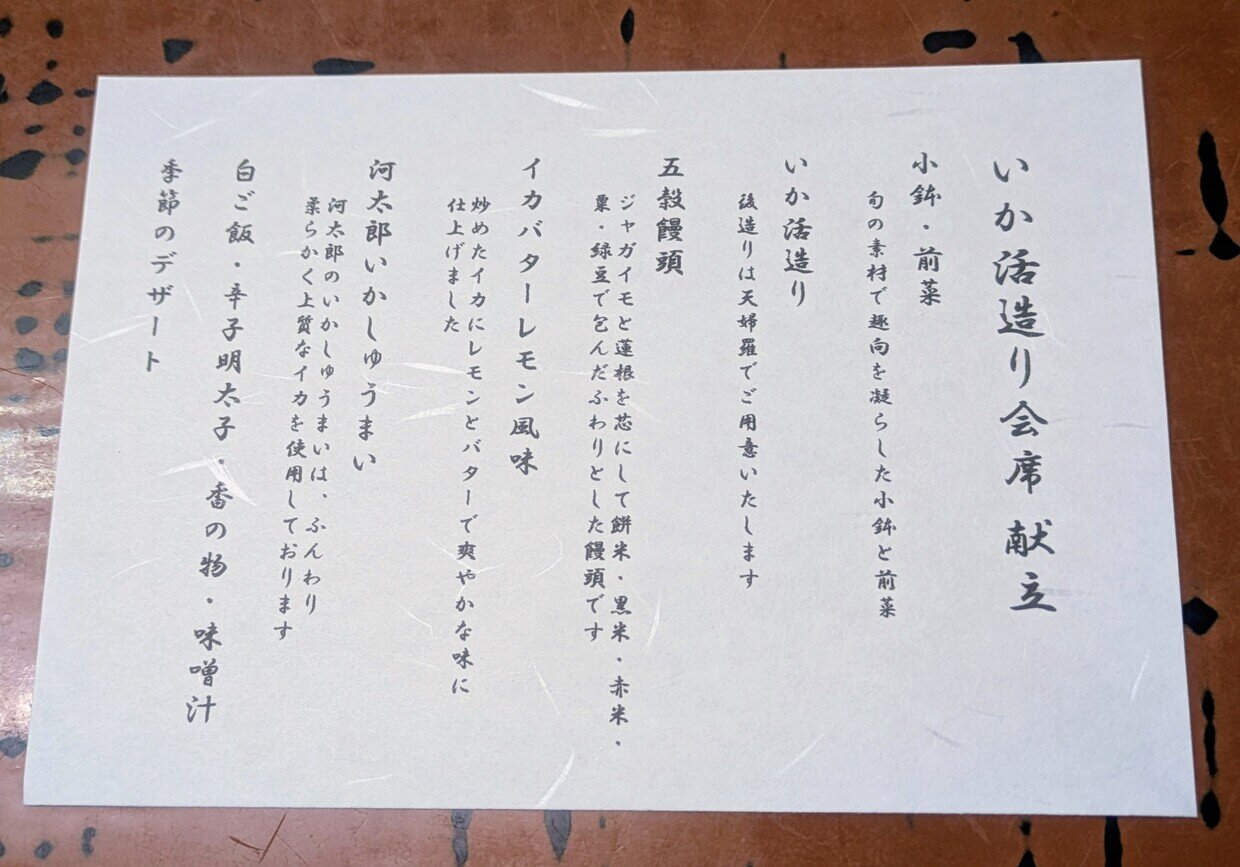 いか活造り会席 献立
小鉢・前菜
旬の素材で趣向を凝らした小鉢と前菜
いか活造り
後造りは天婦羅でご用意いたします
五穀饅頭
ジャガイモと蓮根を芯にして餅米・黒米・赤米・
粟・緑豆で包んだふわりとした饅頭です
イカバターレモン風味
炒めたイカにレモンとバターで爽やかな味に
仕上げました
河太郎いかしゅうまい
河太郎のいかしゅうまいは、ふんわり
柔らかく上質なイカを使用しております
白ご飯・辛子明太子・香の物・味噌汁
季節のデザート